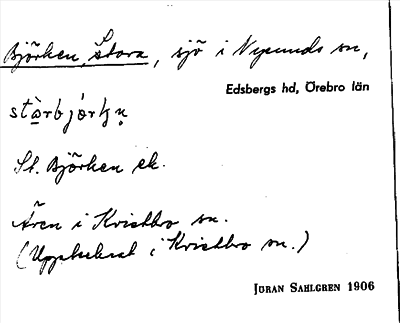 Björken, Stora, sjö i Nysunds sn,
Edsbergs hd, Örebro län
stàrbjórkn̥
St. Björken ek.
Även i Kvistbro sn.
(Upptecknat i Kvistbro sn.)
JÖRAN SAHLGREN 1906